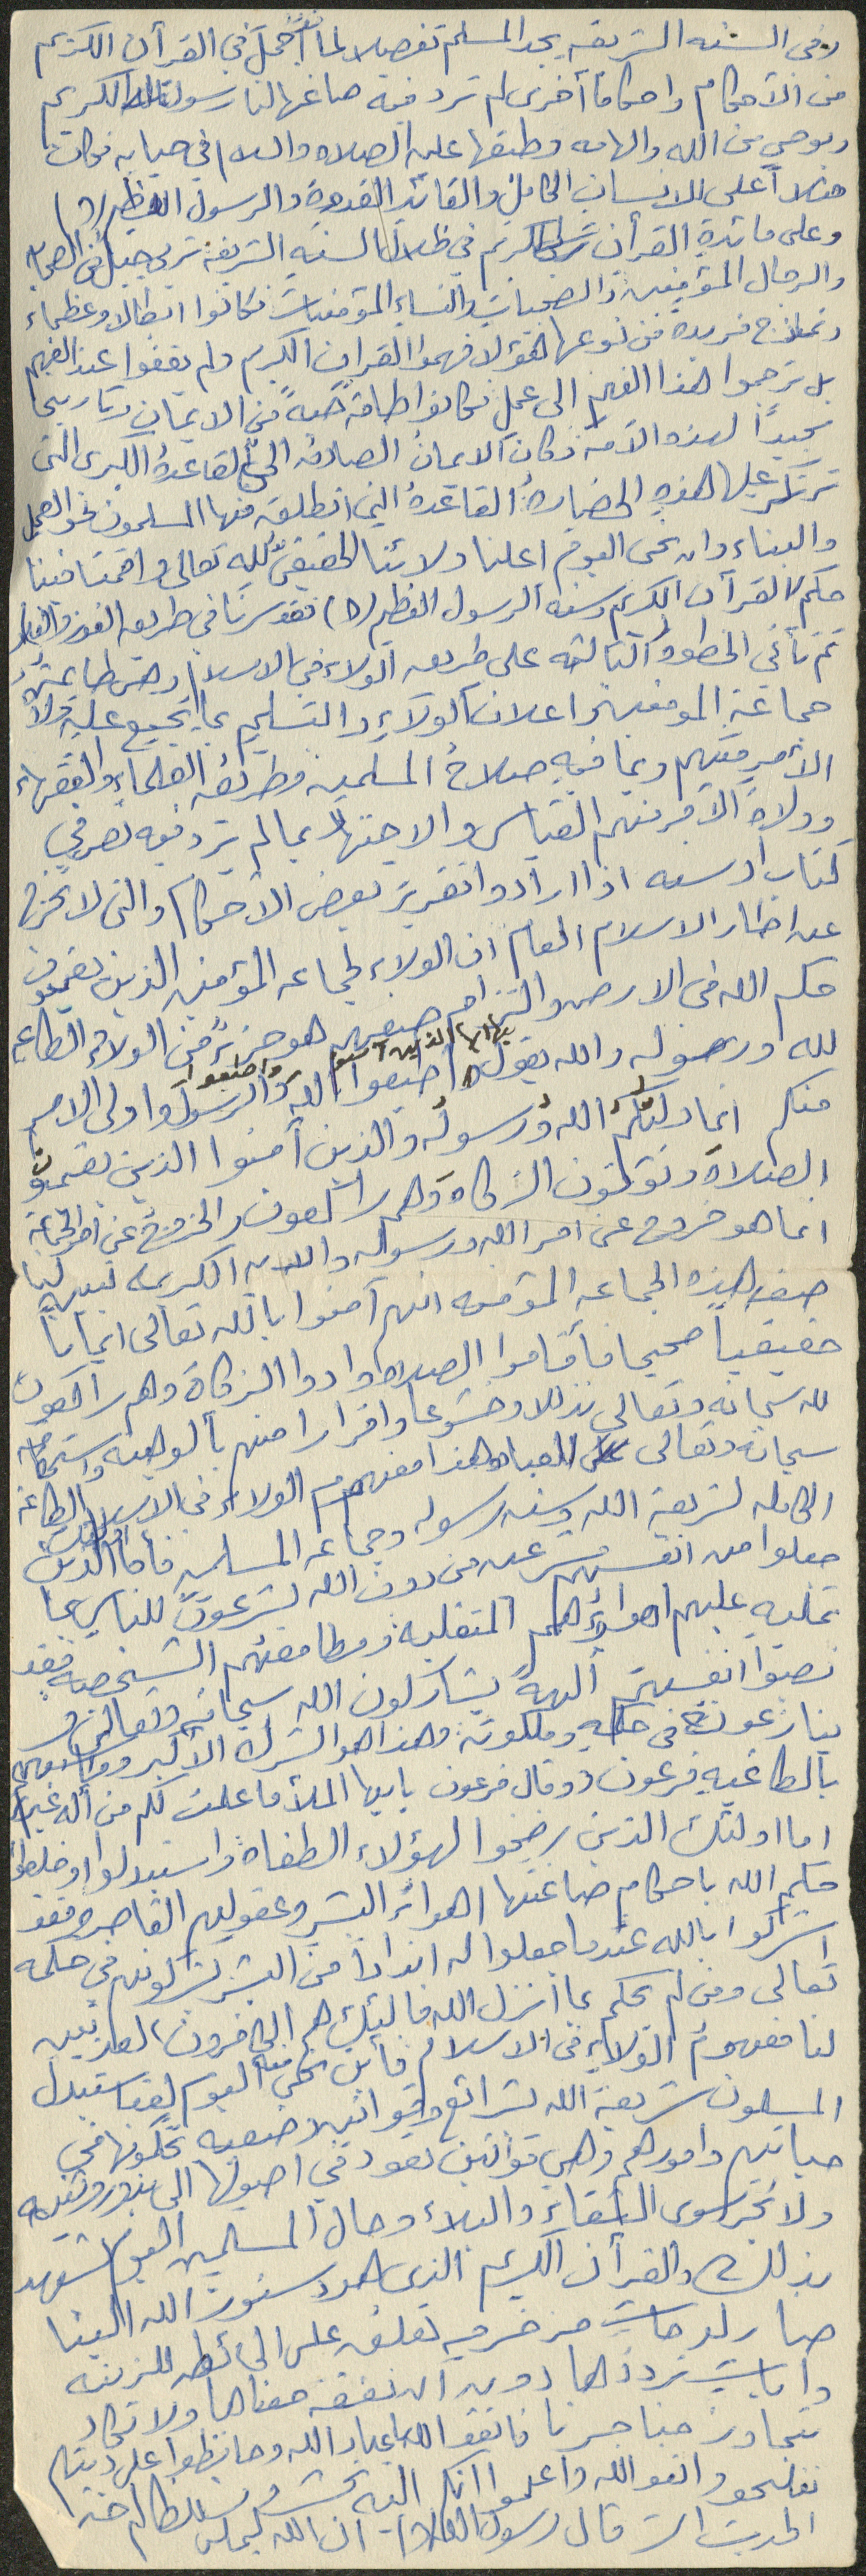 وفي السنه الشريفه يجد المسلم تفصيلا لما أجمل في القرآن الكريم
من الأحكام واحكاما أخرى لم ترد فيه صاغها لنا رسول الله الكريم
وبوحي من الله والهامه وطبقها عليه الصلاه والسلام في حياته فكانت
مثلا أعلى للانسان الكامل والقائد القدوة والرسول العظيم (ص)
وعلى مائدة القرآن الكريم في ظلال السنه الشريفه تربى جيل من الصحابه
والرجال المؤمنين والصحبيات والنساء المؤمنات فكانوا ابطالا وعظماء
ونماذج فريدة من نوعها هؤلا فهموا القرآن الكريم ولم يقفوا عند الفهم
بل ترجموا هذا الفهم الى عمل فكانوا طاقة حية من الايمان وتاريخا
مجيداً لهذه الأمه فكان الايمان الصادق الحي القاعدة الكبرى التي
ترتكز عليها هذه الحضارة القاعدة التي انطلق منها المسلمون نحو العمل
والبناء وان نحن اليوم اعلنا ولائنا الحقيقي لله تعالى واقمنا فينا
حكم القرآن الكريم وسنه الرسول العظيم (ص) فقد سرنا في طريق الفوز والفلاح
ثم تأتي الخطوة الثالثه على طريق الولاء في الاسلام وهي طاعة
جماعة المؤمنين واعلان الولاء والتسليم بما يجمع عليه ولاة
الأمر منهم وبما فيه صلاح المسلمين وطريق العلماء والفقهاء
وولاة الأمر منهم القياس والاجتهاد بما لم ترد فيه نص في
كتاب أو سنه اذا ارادوا تقرير بعض الأحكام والتي لا تخرج
عن اطار الاسلام العام ان الولاء لجماعه المؤمنين الذين يقيمون
حكم الله في الارض والتزام جميعهم هو جزء من الولاء والطاعه
لله ورسوله والله يقول (يا ايها الذين آمنوا اطيعوا الله واطيعوا الرسول واولى الامر
منكم انما وليكم الله ورسوله والذين آمنوا الذين يقيمون
الصلاة ويؤتون الزكاة وهم راكعون والخروج عن امر الجماعة
انما هو خروج عن امر الله ورسوله والايه الكريمه تبين لنا
صفه هذه الجماعه المؤمنه انهم آمنوا بالله تعالى ايماناً
حقيقياً صحيحا فأقاموا الصلاه وادوا الزكاة وهم راكعون
لله سبحانه وتعالى تذللا وخشوعا واقرارا منهم بألوهيه واستحقاقه
سبحانه وتعالى للعباده هذا مفهوم الولاء في الاسلام الطاعة
الكامله لشريعة الله وسنه رسوله وجماعه المسلمين فاما اولئك الذين
جعلوا من انفسهم مشرعين من دون الله يشرعون للناس بما
تمليه عليهم اهواؤهم المتقلبه ومطامعهم الشخصيه فقد
نصبوا انفسهم ألهة يشاركون الله سبحانه وتعالى و
ينازعونه في حكمه وملكوته وهذا هو الشرك الأكبر
بالطاغيه فرعون (وقال فرعون يا ايها الملأ ما علمت لكم من أله غيري)
اما اولئك الذين رضخوا لهؤلاء الطغاة واستبدلوا وخلطوا
حكم الله باحكام صاغتها اهواء البشر وعقولهم القاصره فقد
اشركوا بالله عندما جعلوا له انداداً من البشر يشركونه في حكمه
تعالى ومن لم يحكم بما أنزل الله فأليئك هم الكافرون لقد تبين
لنا مفهوم الولاء في الاسلام فأين نحن منه اليوم لقد استبدل
المسلمون شريعة الله بشرائع وقوانين وضعيه تحكمونها في
حياتهم وامورهم وهي قوانين تعود في اصولها الى
ولا تجر سوى الشقاء والبلاء وحال المسلمين اليوم يشهد
بذلك والقرآن الكريم الذي هو دستور الله الينا
صار لوحات مزخرفه تعلق على الحائط للزينه
وايات نرددها دون ان نفقه معناها ولا تكاد
تتجاوز حناجرنا فاتقوا الله يا عباد الله وحافظوا على دينكم
تفلحوا واتقوا الله واعلموا انكم اليه تحشرون
الحديث الشريف قال رسول الله (ص) - ان الله ليملي للظالم حتى